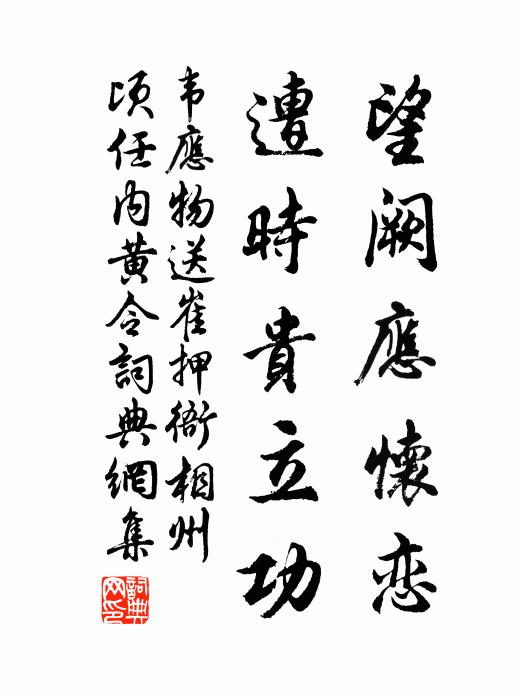 望阙應懷恋
遭時貴立功
韦應物送崔押衙相州
顷任内黄令詞典網集
詞典
网印